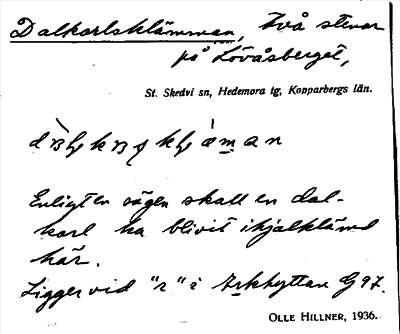 Dalkarlsklämman, två stenar
på Lövåsberget,
St. Skedvi sn, Hedemora tg, Kopparbergs län.
Enligt en sägen skall en dal-
karl ha blivit ihjälklämd
här.
Ligger vid "r" i Arkhyttan G 97.
OLLE HILLNER, 1936.